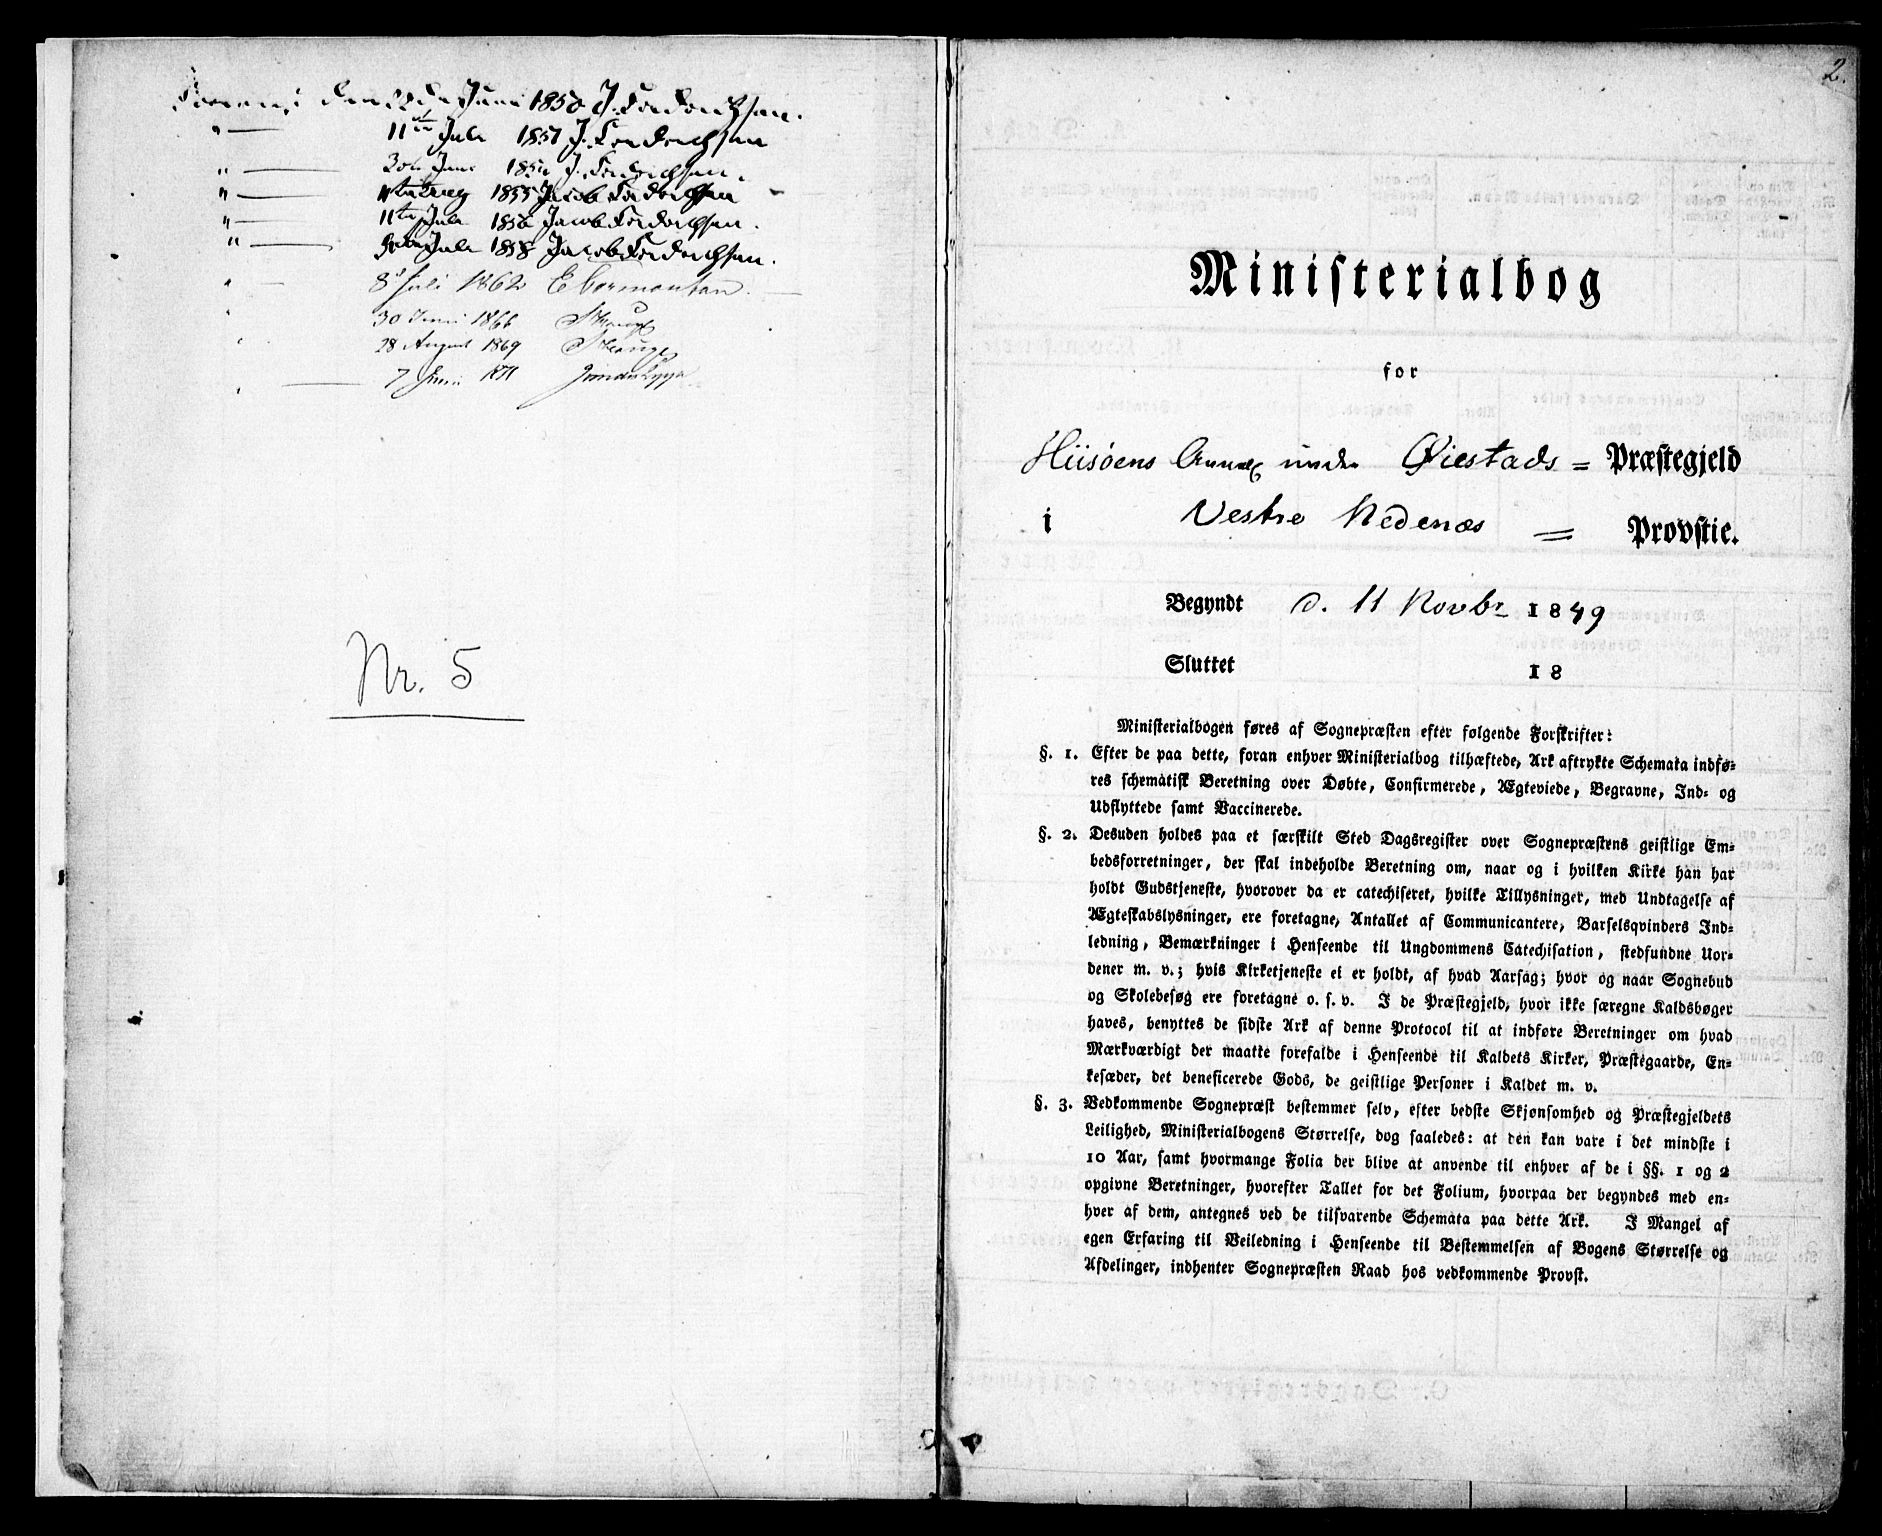 Juni 1850 J. Frederichsen.
"— 11te Juli 1851 J. Frederichsen
" — Juni J. Frederichsen.
" — 1855 Jacob Frederichsen
" — 11te Juli 1856 Jacob Frederichsen.
" — Juli 1858 Jacob Frederichsen.
" — 8de Juli 1862
30 Juni 1866 J Hauge
28 August 1869 J Hauge
" — 7 Juni 1871
Nr. 5
2.
Ministerialbog
for
Hiisøens Annex under Øiestads = Præstegjeld
i Vestre Nedenæs = Provstie.
Begyndt d. 11 Novbr 1849
Sluttet 18
Ministerialbogen føres af Sognepræsten efter følgende Forskrifter:
§. 1. Efter de paa dette, foran enhver Ministerialbog tilhæftede, Ark aftrykte Schemata indfø-
res schematisk Beretning over Døbte, Confirmerede, Ægteviede, Begravne, Ind- og
Udflyttede samt Vaccinerede.
§. 2. Desuden holdes paa et særskilt Sted Dagsregister over Sognepræstens geistlige Em-
bedsforretninger, der skal indeholde Beretning om, naar og i hvilken Kirke han har
holdt Gudstjeneste, hvorover da er catechiseret, hvilke Tillysninger, med Undtagelse af
Ægteskabslysninger, ere foretagne, Antallet af Communicantere, Barselsqvinders Ind-
ledning, Bemærkninger i Henseende til Ungdommens Catechisation, stedfundne Uor-
dener m. v.; hvis Kirketjeneste ei er holdt, af hvad Aarsag; hvor og naar Sognebud
og Skolebesøg ere foretagne o. s. v. I de Præstegjeld, hvor ikke særegne Kaldsbøger
haves, benyttes de sidste Ark af denne Protocol til at indføre Beretninger om hvad
Mærkværdigt der maatte forefalde i Henseende til Kaldets Kirker, Præstegaarde, En-
kesæder, det beneficerede Gods, de geistlige Personer i Kaldet m. v.
§. 3. Vedkommende Sognepræst bestemmer selv, efter bedste Skjønsomhed og Præstegjeldets
Leilighed, Ministerialbogens Størrelse, dog saaledes: at den kan vare i det mindste i
10 Aar, samt hvormange Folia der blive at anvende til enhver af de i §§. 1 og 2
opgivne Beretninger, hvorefter Tallet for det Folium, hvorpaa der begyndes med en-
hver af dem, antegnes ved de tilsvarende Schemata paa dette Ark. I Mangel af
egen Erfaring til Veiledning i Henseende til Bestemmelsen af Bogens Størrelse og
Afdelinger, indhenter Sognepræsten Raad hos vedkommende Provst.